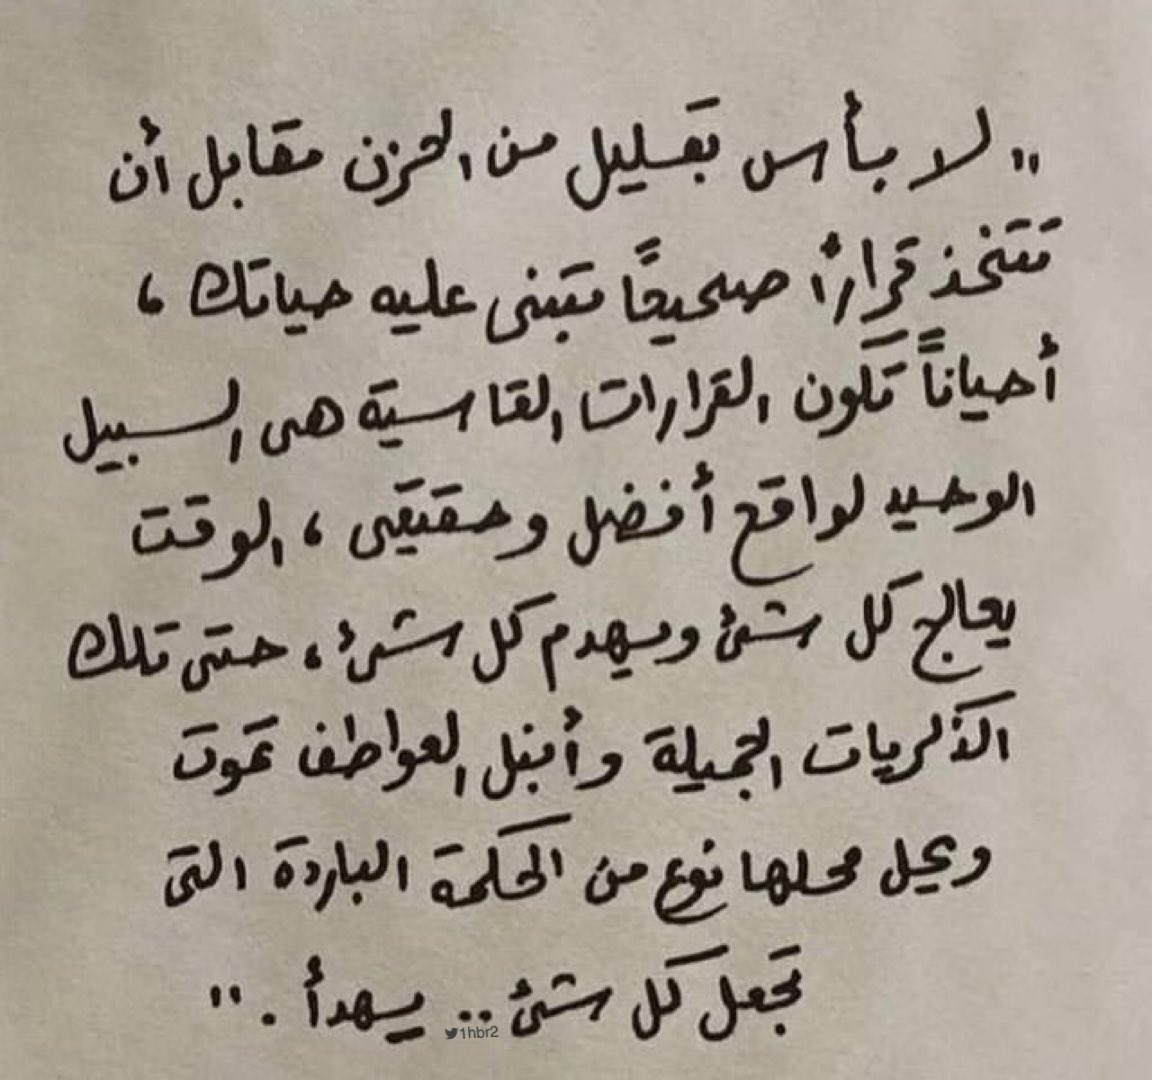 " لا بأس بقليل من الحزن مقابل أن
تتخذ قرارًا صحيحًا تبنى عليه حياتك ،
أحياناً تكون القرارات القاسية هى السبيل
الوحيد لواقع أفضل وحقيقى ، الوقت
يعالج كل شئ ويهدم كل شئ ، حتى تلك
الذكريات الجميلة وأنبل العواطف تموت
ويحل محلها نوع من الحكمة الباردة التى
تجعل كل شئ .. يهدأ . "
1hbr2